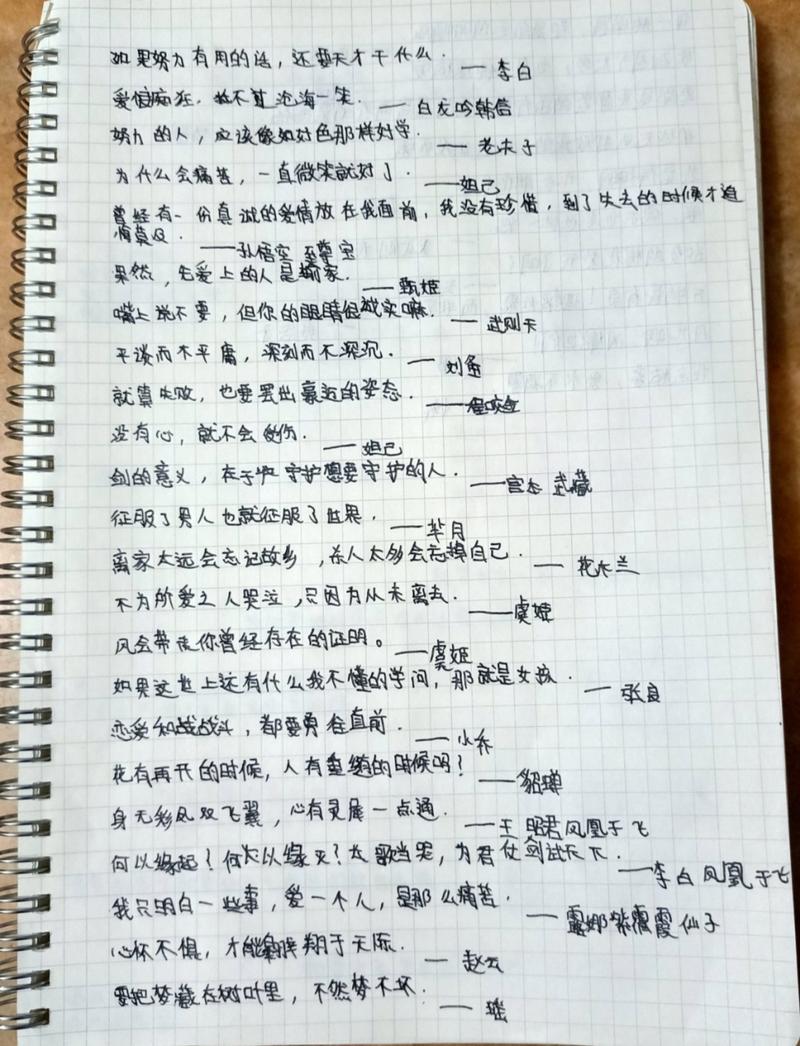 如果努力有用的话，还要天才干什么．——李白
爱恨痴狂，敌不过沧海一笑．——白龙吟韩信
努力的人，应该像如好色那样好学．——老夫子
为什么会痛苦，一直微笑就好了．——妲己
曾经有一份真诚的爱情放在我面前，我没有珍惜，到了失去的时候才追
悔莫及．——孙悟空 至尊宝
果然，先爱上的人是输家．——甄姬
嘴上说不要，但你的眼睛很诚实嘛．——武则天
平淡而不平庸，深刻而不深沉．——刘备
就算失败，也要摆出豪迈的姿态．——程咬金
没有心，就不会受伤．——妲己
剑的意义，在于守护想要守护的人．——宫本 武藏
征服了男人也就征服了世界．——芈月
离家太远会忘记故乡，杀人太多会忘掉自己．——花木兰
不为所爱之人哭泣，只因为从未离去．——虞姬
风会带走你曾经存在的证明。——虞姬
如果这世上还有什么我不懂的学问，那就是女孩．——张良
恋爱和战战斗，都要勇往直前．——小乔
花有再开的时候，人有重逢的时候吗？——貂蝉
身无彩凤双飞翼，心有灵犀一点通．——王 昭君凤凰于飞
何以缘起？何以缘灭？长歌当哭，为君仗剑试天下．——李白 凤凰于飞
我只明白一些事，爱一个人，是那么痛苦．——露娜紫霞仙子
心怀不惧，才能翱翔于天际．——赵云
要把梦藏在树叶里，不然梦不坏．——瑶